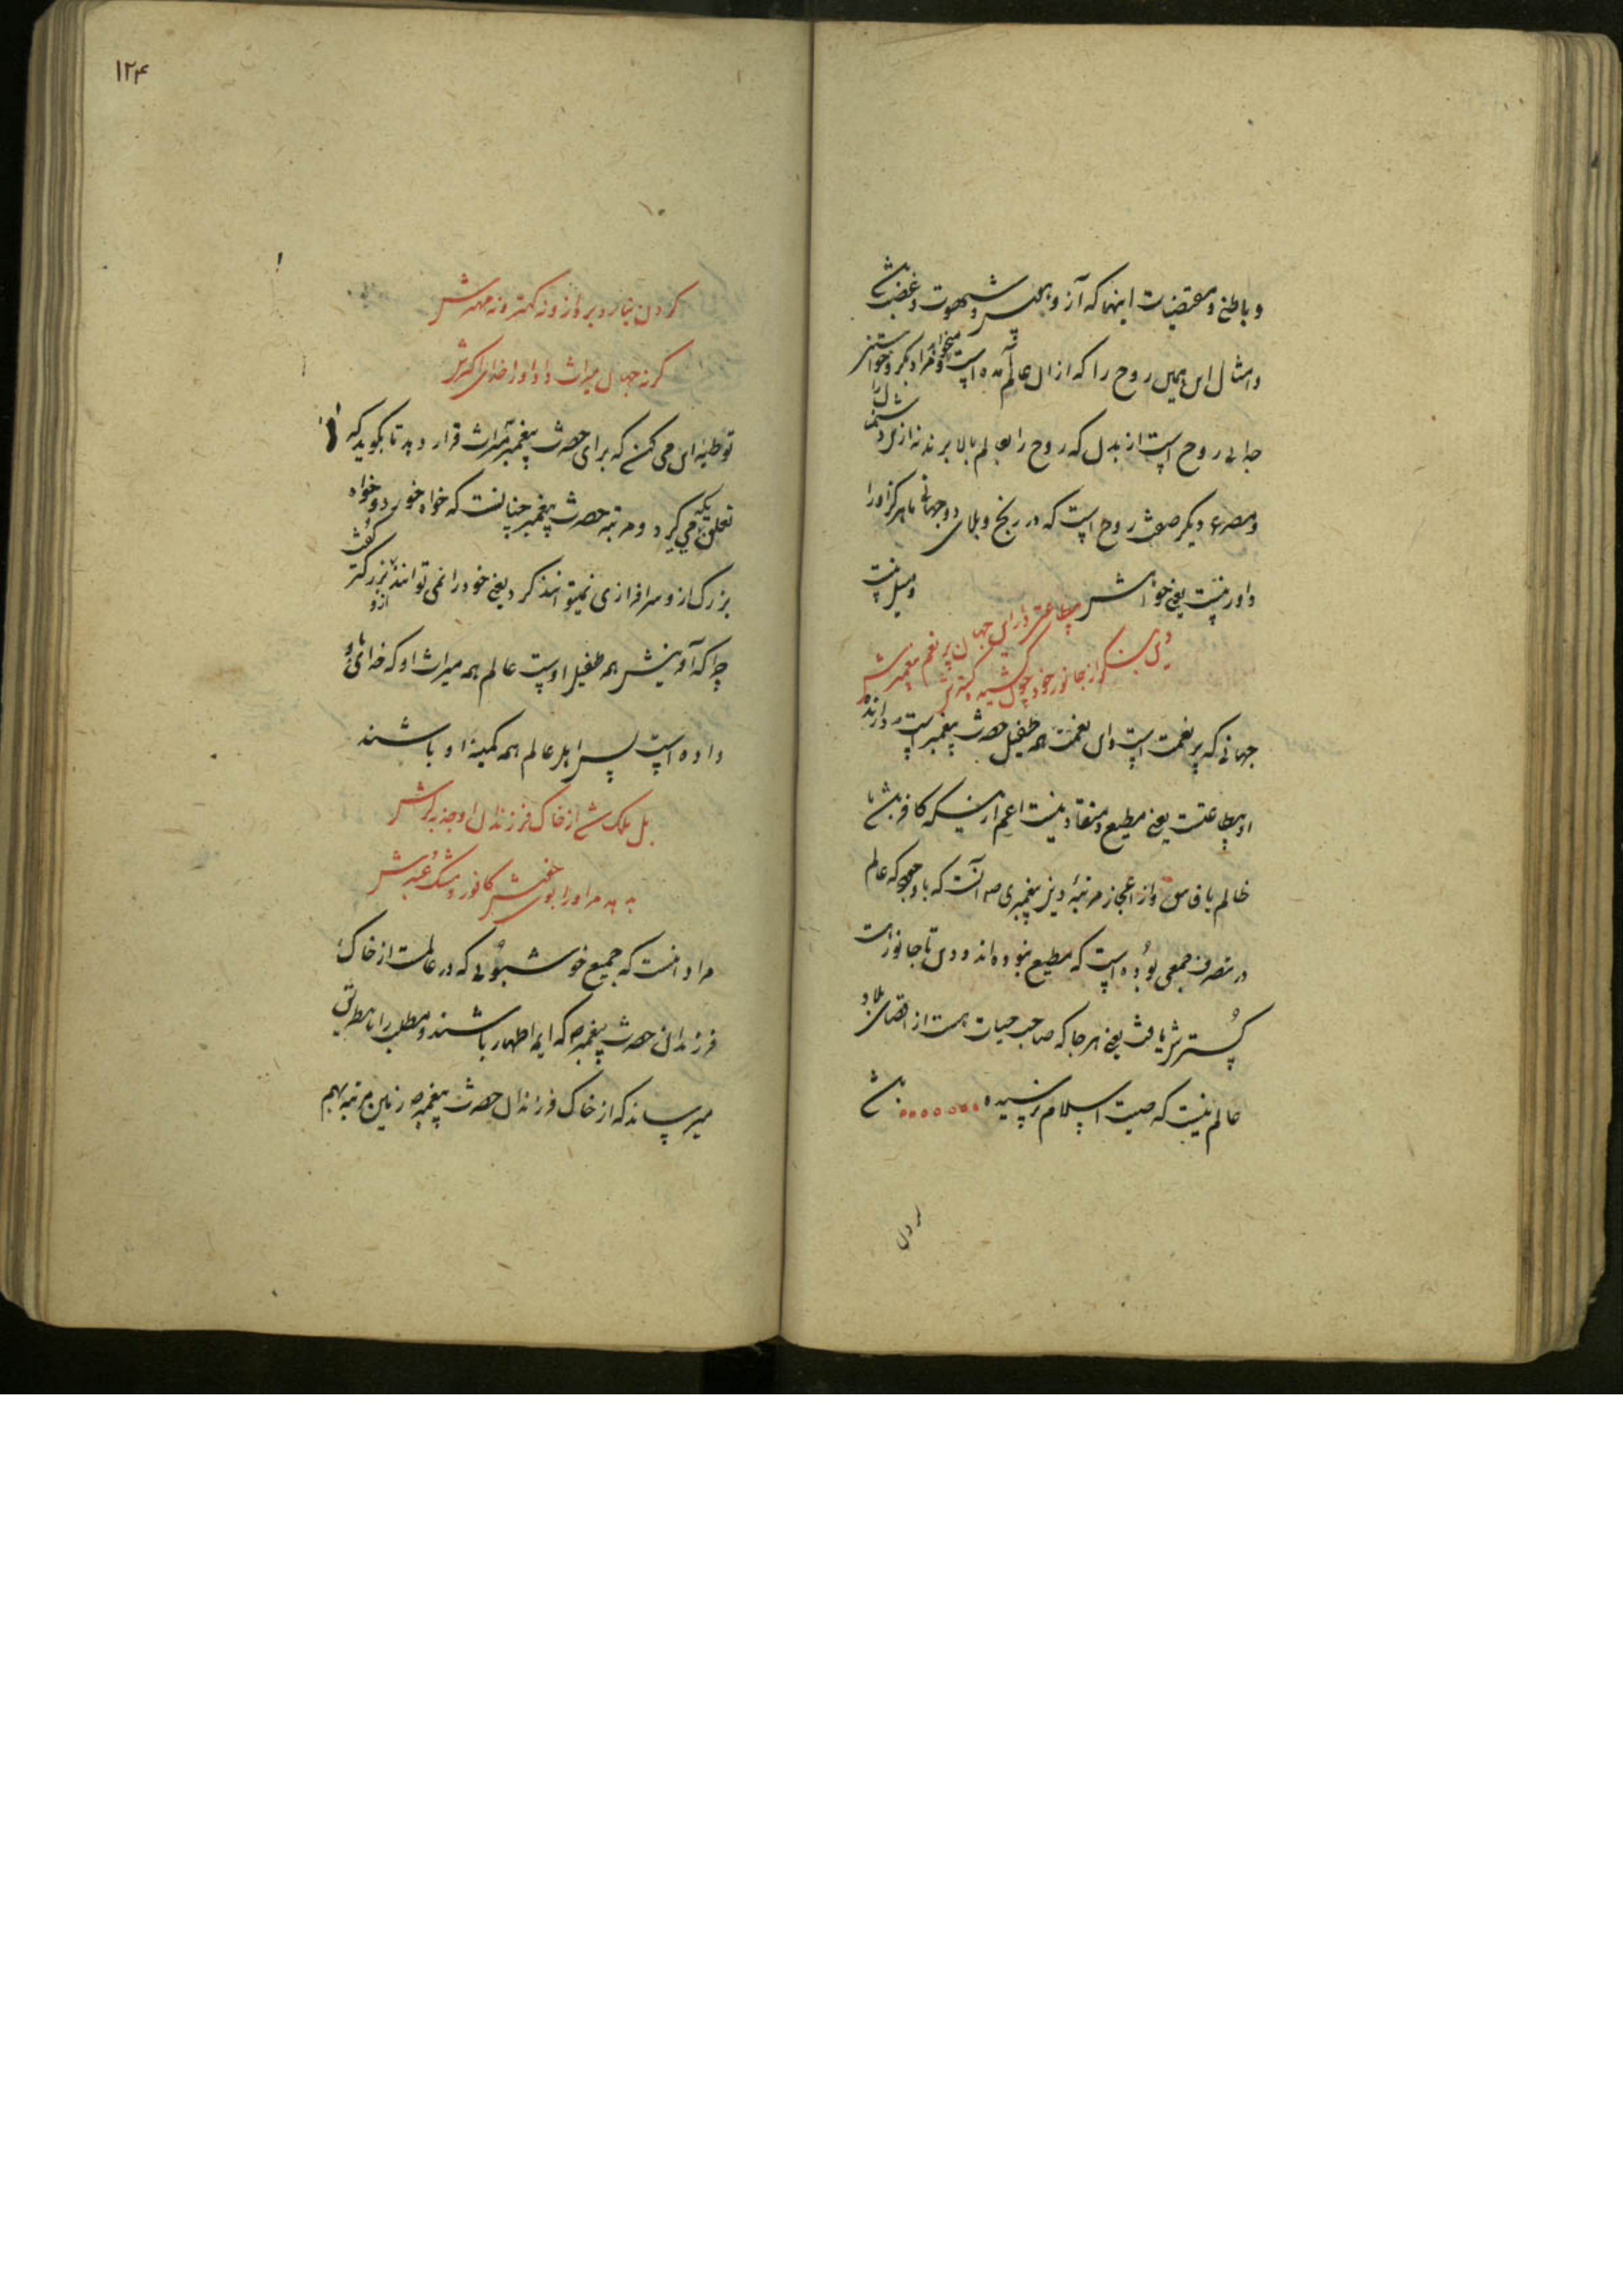 و باطنی و مقتضیات اینها که آز و هوس و شهوت و غضب باشد
و امثال این همین روح را که از ان عالم آمده است میخواهد و مراد بکر و خواستن
جدایی روح است از بدن که روح را بعالم بالا برند نه از بدن
و مصرع دیگر صفت روح است که در رنج و بلای دو جهانی با هرکز او را
داور نیست یعنی خواهش و میل نیست
مطاعتی در این جهان پر نعم پیغمبرش
وین بنگر از جانور خود چون کشیده کسترش
جهانی که پر نعمت است و این نعمت همه طفیل حضرت پیغمبر است دارنده
او مطاعت یعنی مطیع و منقاد نیست اعم از اینکه کافر باشد یا
ظالم یا فاسق و از اعجاز مرتبهٔ دین پیغمبری ص آنست که با وجود که عالم
در تصرف جمعی بوده است که مطیع نبوده اند و دین تا جانور است
کسترش یافت یعنی هر جا که صاحب حیات هست از اقصای بلاد
عالم نیست که صیت اسلام نرسیده باشد
کردن
۱۲۴
کردن نیارد بر فراز و نه کهتر و نه مهترش
کز جهان میراث داد او را خدای اکبرش
توطئه این می کند که برای حضرت پیغمبر میراث قرار دهد تا بگوید که
تعلق می گیرد و مرتبه حضرت پیغمبر چنانست که خواه خورد و خواه
بزرک از و سرافرازی نمیتوانند کرد یعنی خود را نمی توانند بزرکتر ازو گفت
چرا که آفرینش همه طفیل اوست عالم همه میراث او که خدای باو
داده است پس اهل عالم همه کمینه او باشند
بل ملک شد از خاک فرزندان او جذب برش
بدهد مر او را بوی خوش کافور و مشک و عنبرش
مراد انست که جمیع خوشبوئی که در عالمست از خاک
فرزندان حضرت پیغمبر ص که ایمه اطهار باشند و مطلب را باین طریق
میرساند که از خاک فرزندان حضرت پیغمبر ص زمین مرتبه بهم